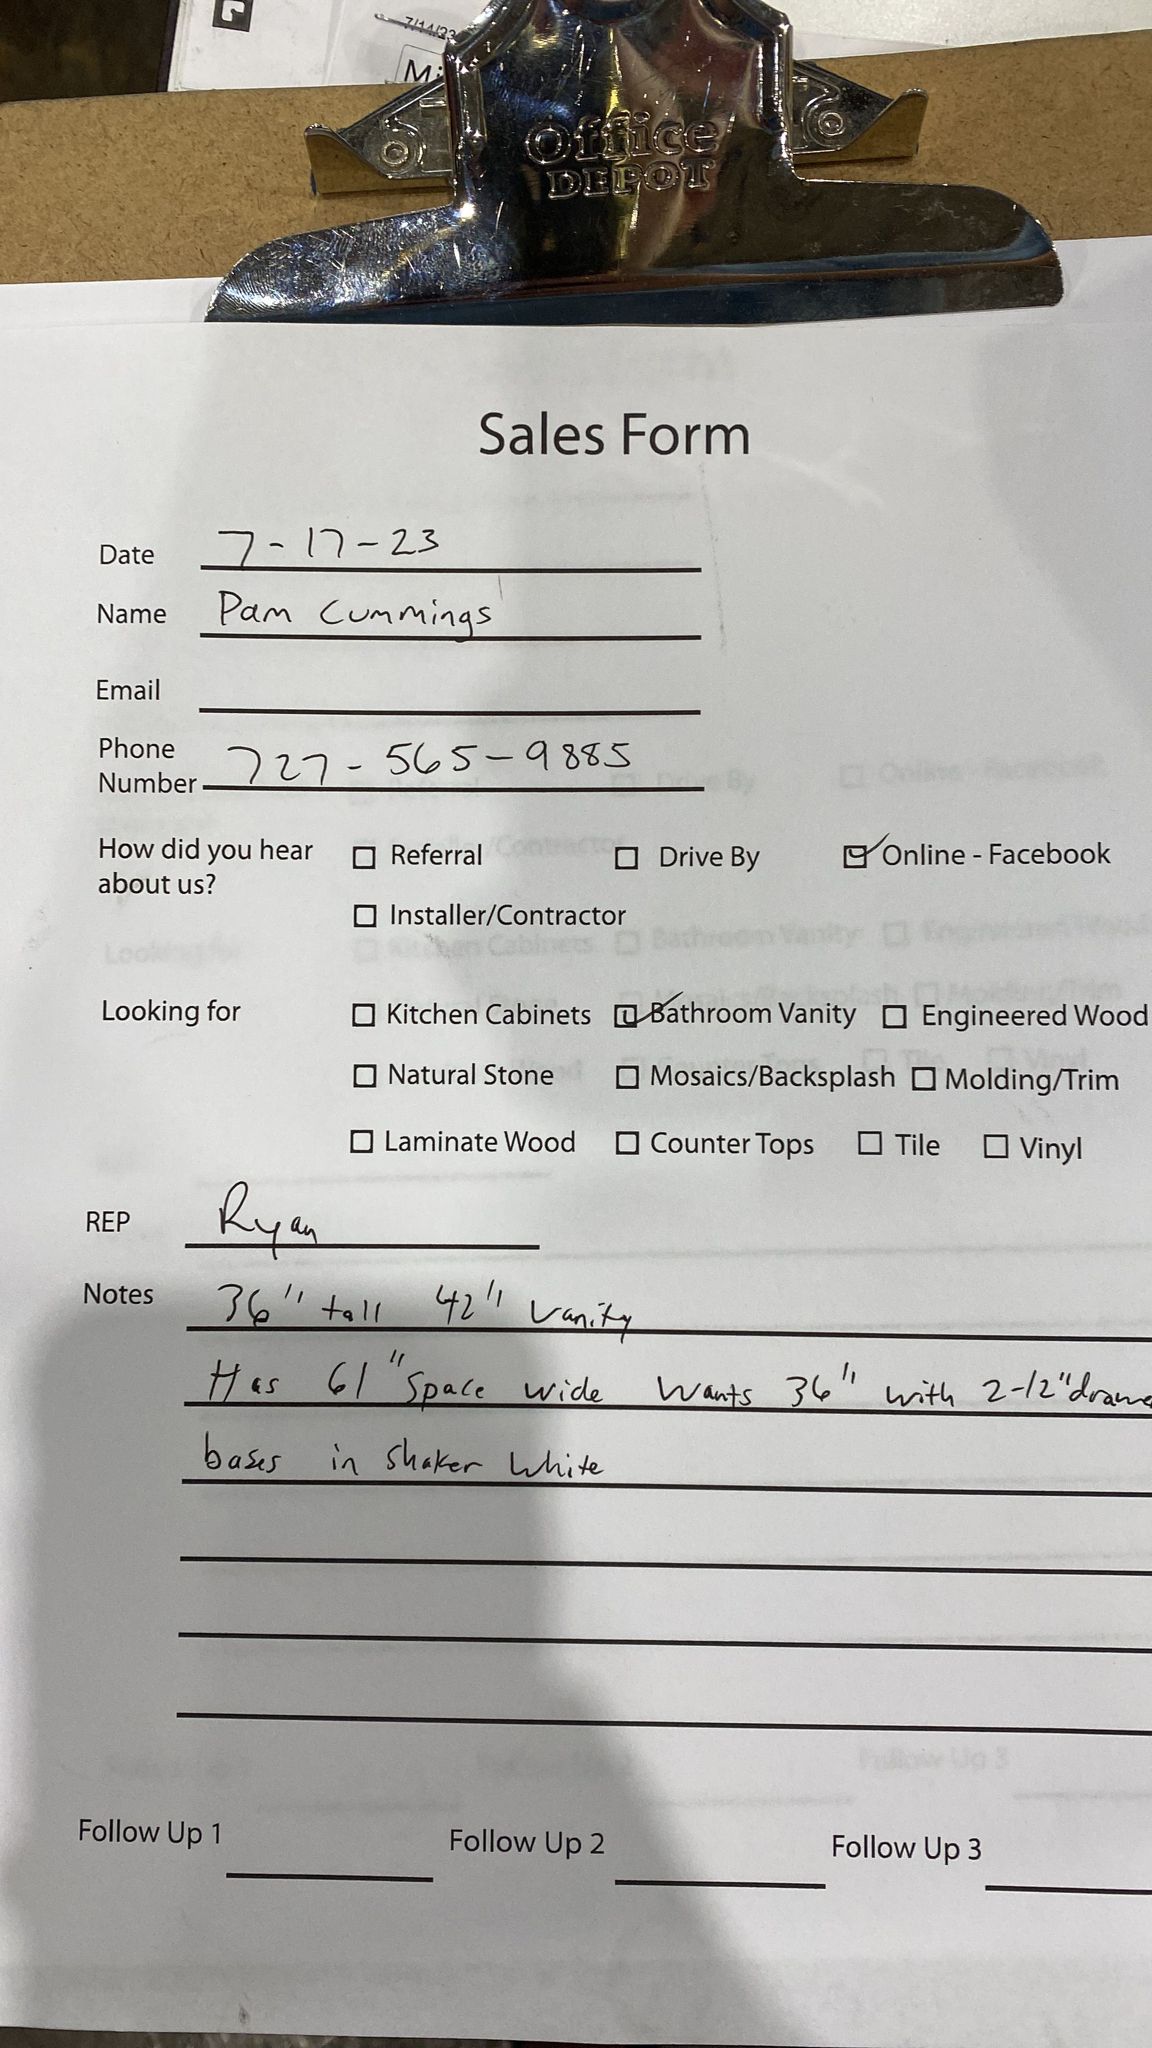 7/14/23
Mi
Office
DEPOT
Sales Form
Date 7-17-23
Name Pam Cummings
Email
Phone
Number 727-565-9885
How did you hear
about us?
Referral Drive By Online - Facebook
Installer/Contractor
Looking for Kitchen Cabinets Bathroom Vanity Engineered Wood
Natural Stone Mosaics/Backsplash Molding/Trim
Laminate Wood Counter Tops Tile Vinyl
REP Ryan
Notes 36" tall 42" vanity
Has 61" space wide wants 36" with 2-12" drawe
bases in shaker white
Follow Up 1 Follow Up 2 Follow Up 3